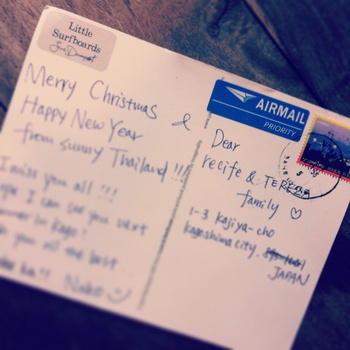 Little
Surfboards
Merry Christmas
&
Happy New Year
from sunny Thailand!!!
I miss you all!!!
can see you next
in Kago!
you all the best
AIRMAIL
PRIORITY
Dear
recife &
family ♡
1-3 kajiya-cho
kagoshima city
JAPAN